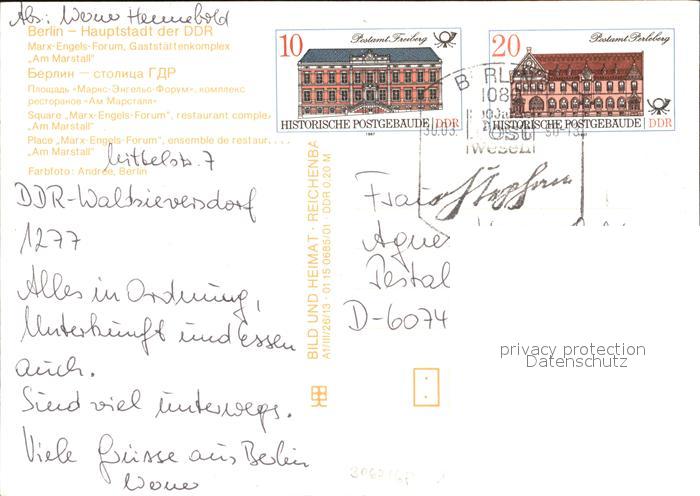 Abs: Werner Hennebold
Berlin – Hauptstadt der DDR
Marx-Engels-Forum, Gaststättenkomplex
„Am Marstall“
Берлин – столица ГДР
Площадь «Маркс-Энгельс-Форум», комплекс
ресторанов «Ам Марсталл»
Square „Marx-Engels-Forum“, restaurant complex
„Am Marstall“
Place „Marx-Engels-Forum“, ensemble de restau
„Am Marstall“
Farbfoto: Andree, Berlin
Mittelstr. 7
DDR-Waldsieversdorf
1277
Alles in Ordnung,
Unterkunft und Essen
auch.
Sind viel unterwegs.
Viele Grüsse aus Berlin
Werner
BILD UND HEIMAT · REICHENBA
A1/III/26/13 · 01 15 0685/01 · DDR 0,20 M
10 Postamt Freiberg
HISTORISCHE POSTGEBÄUDE DDR
1987
20 Postamt Perleberg
HISTORISCHE POSTGEBÄUDE DDR
B RL
108
30.03.
Post
wesen
Stephan
Frau
Agne
Pestal
D-6074
privacy protection
Datenschutz